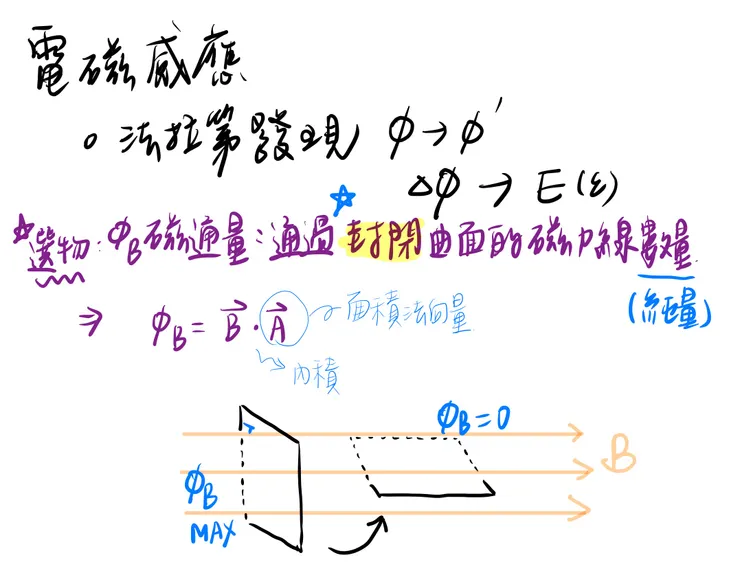 電磁感應
。法拉第發現 ϕ→ϕ'
Δϕ → E(ε)
☆選物:ϕB磁通量:通過☆封閉曲面的磁力線數量
(純量)
⇒ ϕB = B⃗·A⃗ 面積法向量
內積
ϕB=0
B
ϕB
MAX